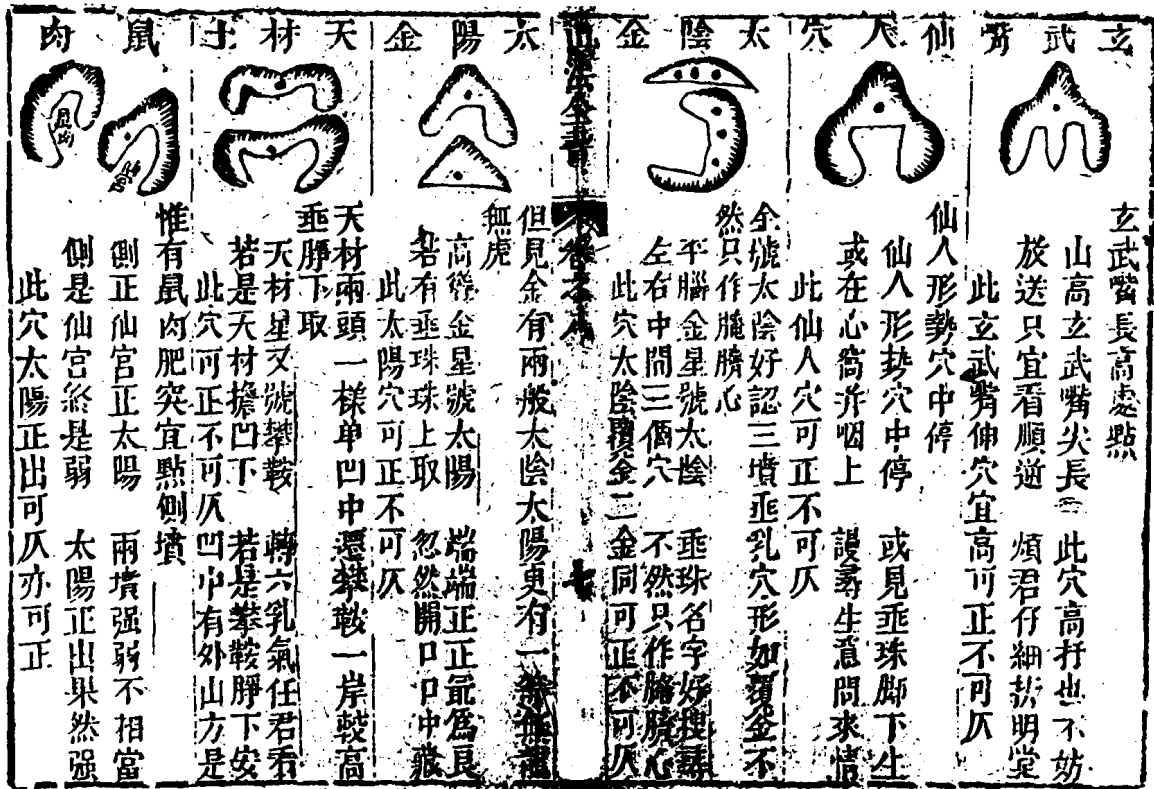 玄武嘴
玄武嘴長高處點
山高玄武嘴尖長 此穴高扦也不妨
放送只宜看順逆 煩君仔細拆明堂
此玄武嘴伸穴宜高可正不可仄
仙人穴
仙人形勢穴中停
仙人形勢穴中停 或見垂珠脚下生
或在心窩并咽上 謾尋生意問來情
此仙人穴可正不可仄
太陰金
金號太陰好認三墳垂乳穴形如覆金不
然只作臍心
平腦金星號太陰 垂珠名字好搜尋
左右中間三個穴 不然只作臍心
此穴太陰覆金二金同可正不可仄
卷之 七
太陽金
但見金有兩般太陰太陽更有一等無龍
無虎
高聳金星號太陽 端端正正最爲良
若有垂珠珠上取 忽然開口口中藏
此太陽穴可正不可仄
天材土
天材兩頭一樣单凹中 攀鞍一岸較高
垂脬下取
天材星又號攀鞍 轉穴乳氣任君看
若是天材擔凹下 若是攀鞍脬下安
此穴可正不可仄凹中有外山方是
鼠肉
鼠肉
惟有鼠肉肥突宜點側墳
側正仙宮正太陽 兩墳强弱不相當
側是仙宮終是弱 太陽正出果然强
此穴太陽正出可仄亦可正